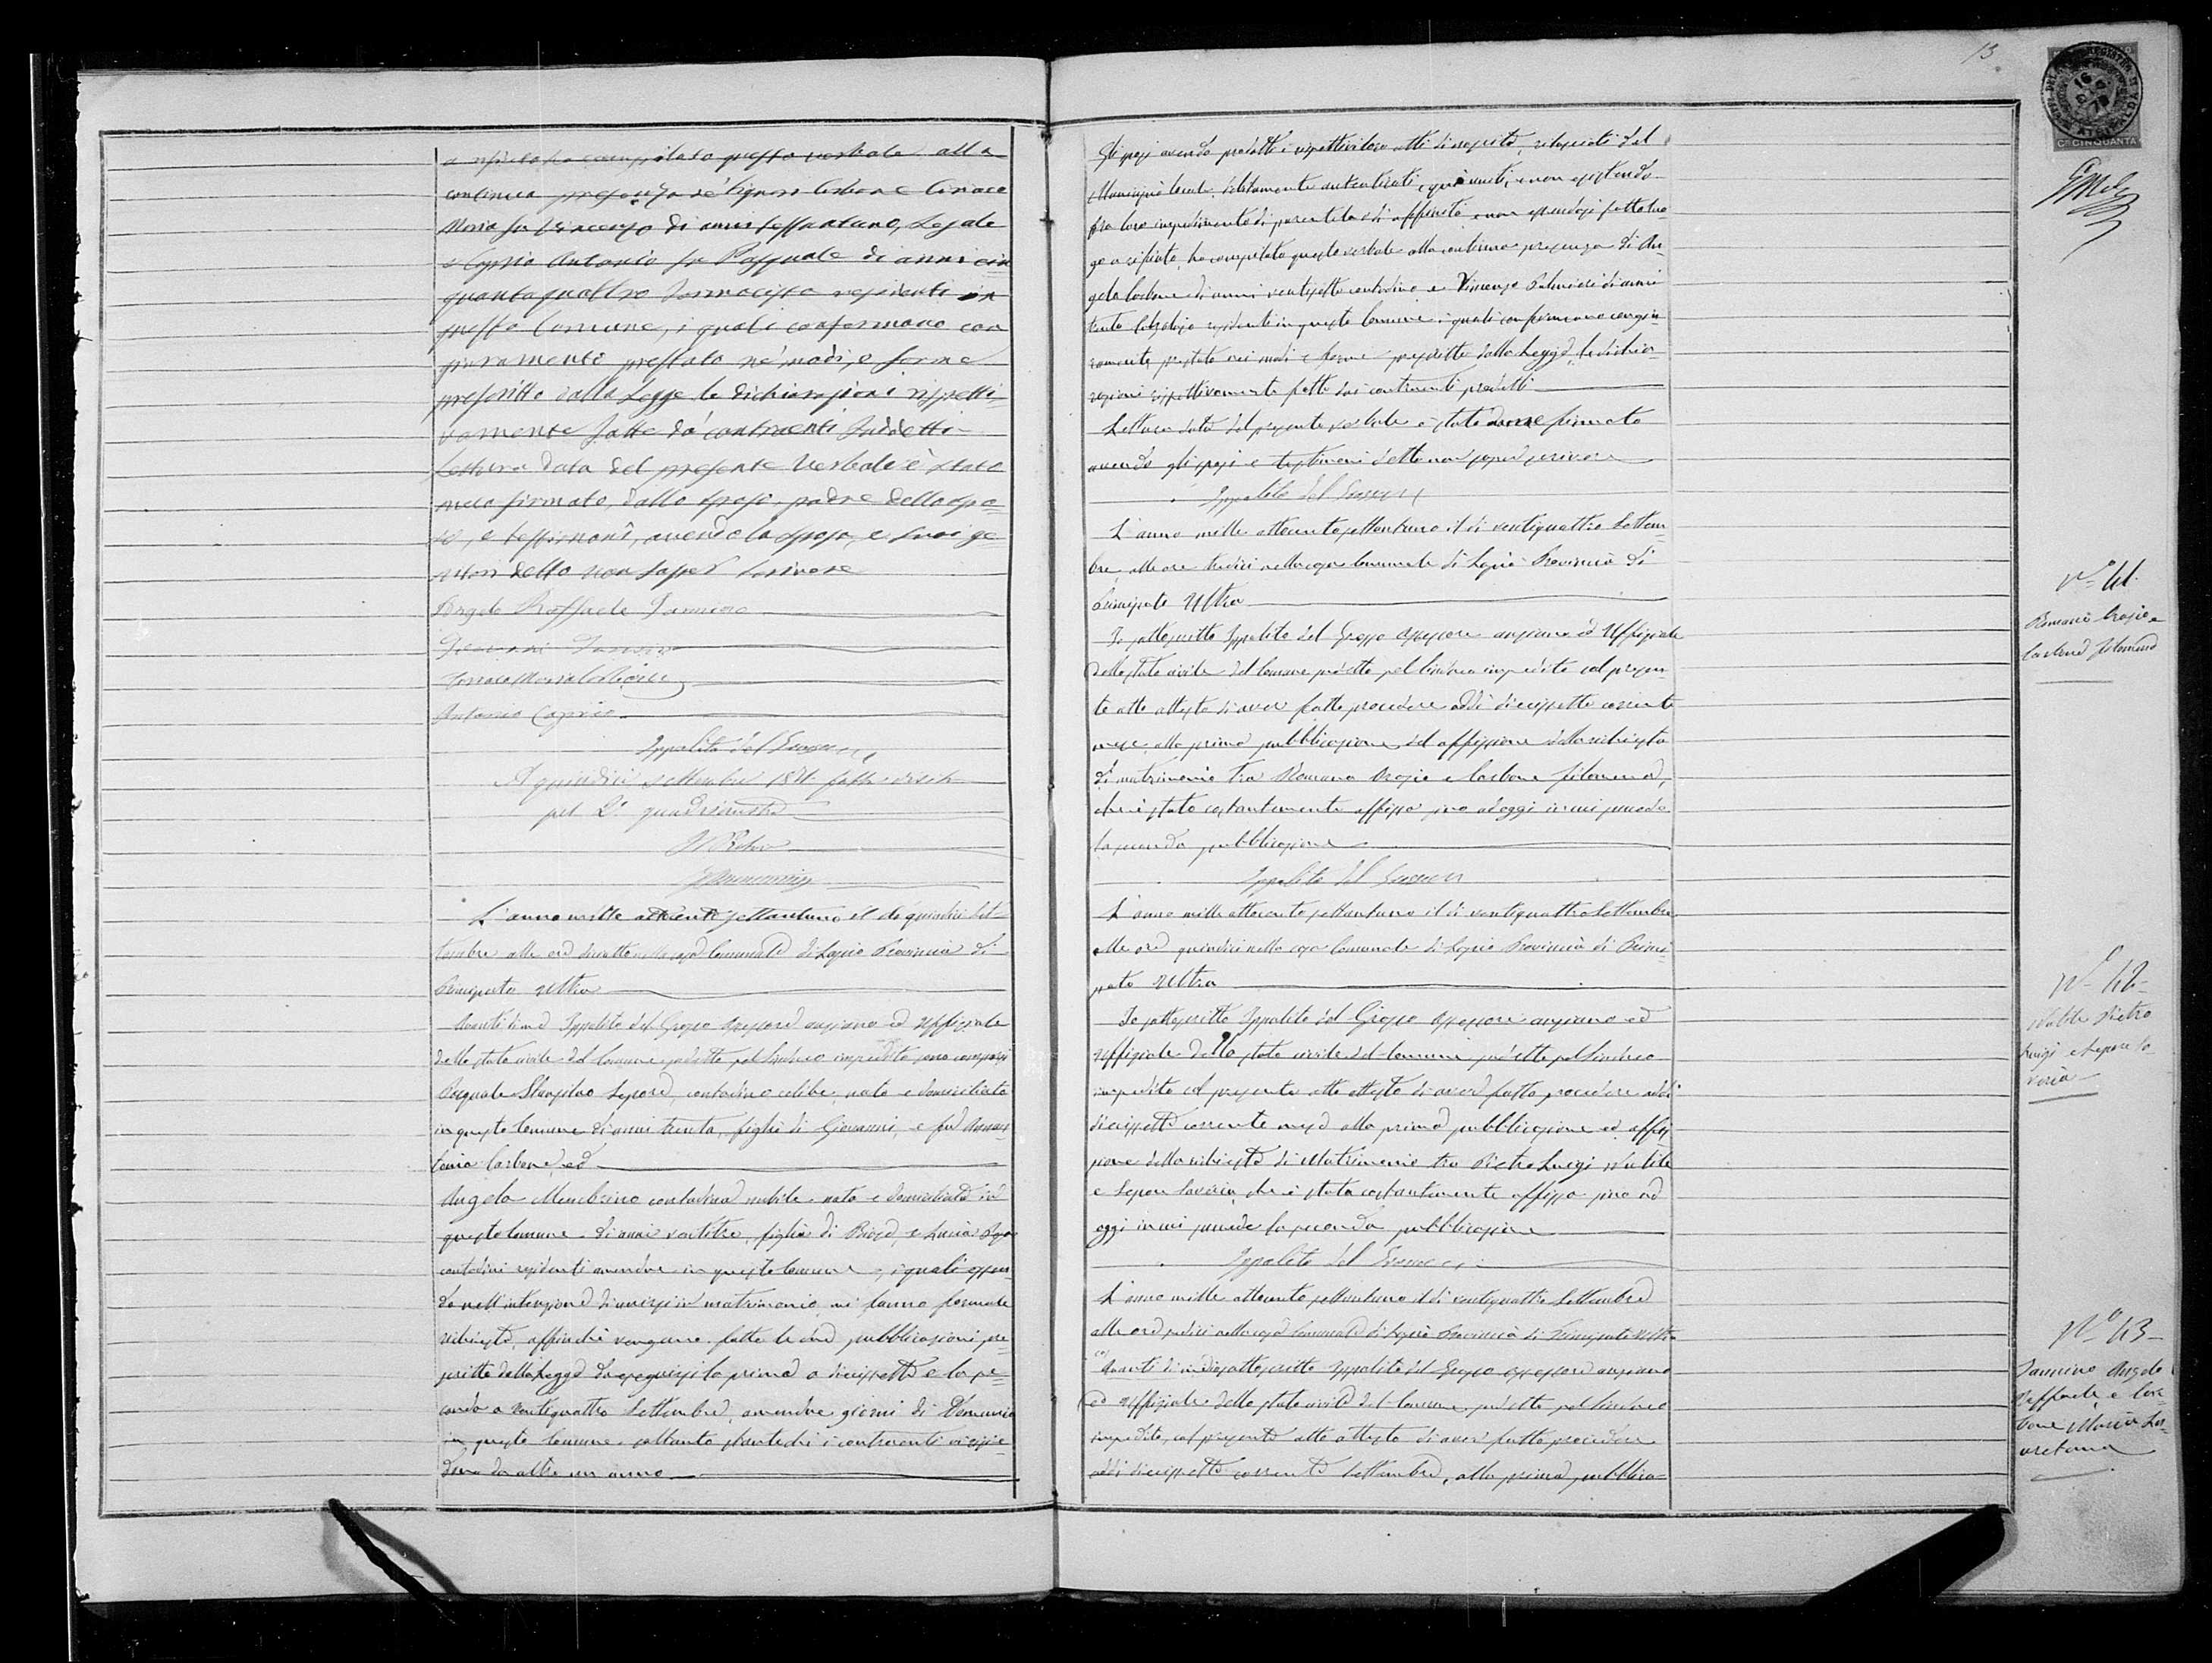 a rifiuto ha compilato questo verbale alla
continua presenza de' Signori Carbone Cerrace
Maria fu Vincenzo di anni sessantuno, Legale
e Caprio Antonio fu Pasquale di anni cin
quantaquattro farmacista residenti in
questo Comune, i quali confermano con
giuramento prestato ne' modi, e forme
prescritte dalla Legge le dichiarazioni rispetti-
vamente fatte da' contraenti suddetti
Lettura data del presente verbale è stato
meco firmato, dallo sposo, padre dello spo-
so, e testimoni, avendo la sposa, e suoi ge-
nitori detto non saper scrivere
Angelo Raffaele Jannino
Giovanni
Antonio Caprio
Ippolito del Grosso
A quindici settembre 1871 fatta
pel 2° quadrimestre
Il Pretore
L'anno mille ottocento settantuno il dì quindici Set-
tembre alle ore diciotto nella casa Comunale di Lapio Provincia di
Principato Ultra
Avanti di me Ippolito del Grosso Assessore anziano ed Uffiziale
dello stato civile del Comune predetto pel Sindaco impedito sono comparsi
Pasquale Lepore, contadino celibe, nato e domiciliato
in questo Comune di anni trenta, figlio di Giovanni, e fu
Carbone, ed
Angela Membrino contadina nubile nata e domiciliata in
questo Comune di anni ventitre, figlia di e Lucia
contadini residenti amendue in questo Comune, i quali essen-
do nell'intenzione di unirsi in matrimonio mi fanno formale
richiesta, affinchè vengano fatte le due pubblicazioni pre-
scritte dalla Legge da eseguirsi la prima a diciassette e la se-
conda a ventiquattro Settembre, amendue giorni di Domenica
in questo Comune soltanto stantechè i contraenti vi risie-
dono da oltre un anno
13
Cmi CINQUANTA
Gli sposi avendo prodotti i rispettivi loro atti di nascita, rilasciati dal
Municipio locale, debitamente autenticati, qui uniti, e non esistendo
fra loro impedimento di parentela o di affinità e non essendosi fatto luo
go a rifiuto, ha compilato questo verbale alla continua presenza di An
gelo Carbone di anni ventisette contadino e Vincenzo Palmieri di anni
trenta Calzolajo residenti in questo Comune i quali confermano con giu
ramento prestato nei modi e forme prescritte dalla Legge, le dichia
razioni rispettivamente fatte dai contraenti predetti
Lettura data del presente verbale è stato da me firmato
avendo gli sposi e testimoni detto non saper scrivere
Ippolito del Grosso
L'anno mille ottocento settantuno il dì ventiquattro Settem
bre, alle ore tredici nella casa Comunale di Lapio Provincia di
Principato Ultra
Io sottoscritto Ippolito del Grosso Assessore anziano ed Uffiziale
dello stato civile del Comune predetto pel Sindaco impedito col presen
te atto attesto di aver fatto procedere addì diciassette corrente
mese, alla prima pubblicazione ed affissione della richiesta
di matrimonio tra Romano Orazio e Carbone Filomena,
che è stata costantemente affissa sino ad oggi in cui procedo
la seconda pubblicazione
Ippolito del Grosso
L'anno mille ottocento settantuno il dì ventiquattro Settembre
alle ore quindici nella casa Comunale di Lapio Provincia di Princi
pato Ultra
Io sottoscritto Ippolito del Grosso Assessore anziano ed
Uffiziale dello stato civile del Comune predetto pel Sindaco
impedito col presente atto attesto di aver fatto procedere addì
diciassette corrente mese alla prima pubblicazione ed affis
sione della richiesta di Matrimonio tra Pietro Luigi
e Lepore Saveria, che è stata costantemente affissa sino ad
oggi in cui procede la seconda pubblicazione
Ippolito del Grosso
L'anno mille ottocento settantuno il dì ventiquattro Settembre
alle ore sedici nella casa Comunale di Lapio Provincia di Principato Ultra
Avanti di me sottoscritto Ippolito del Grosso Assessore anziano
ed Uffiziale dello stato civile del Comune predetto pel Sindaco
impedito, col presente atto attesto di aver fatto procedere
addì diciassette corrente Settembre, alla prima pubblica-
N° 41
Romano Orazio e
Carbone Filomena
N° 42
Pietro
Luigi e Lepore Sa
veria
N° 43
Jannino Angelo
Raffaele e Car
bone Maria